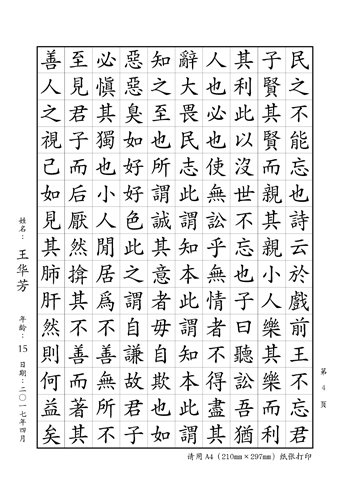 民之不能忘也詩云於戲前王不忘君
子賢其賢而親其親小人樂其樂而利
其利此以沒世不忘也子曰聽訟吾猶
人也必也使無訟乎無情者不得盡其
辭大畏民志此謂知本此謂知本此謂
知之至也所謂誠其意者毋自欺也如
惡惡臭如好好色此之謂自謙故君子
必愼其獨也小人閒居爲不善無所不
至見君子而后厭然揜其不善而著其
善人之視己如見其肺肝然則何益矣
姓名：王华芳 年龄：15 日期：二〇一七年四月
第 4 页
请用A4（210mm×297mm）纸张打印